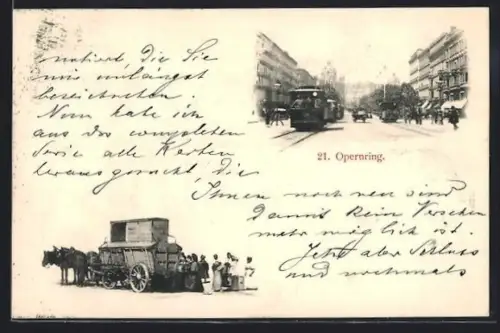 notiert, die Sie
mir unlängst
bezeichneten.
Nun habe ich
aus der completen
Serie alle Karten
herausgesucht, die
21. Opernring.
Ihnen noch neu sind
Damit kein Versehen
mehr möglich ist.
Jetzt aber Schluss
und nochmals